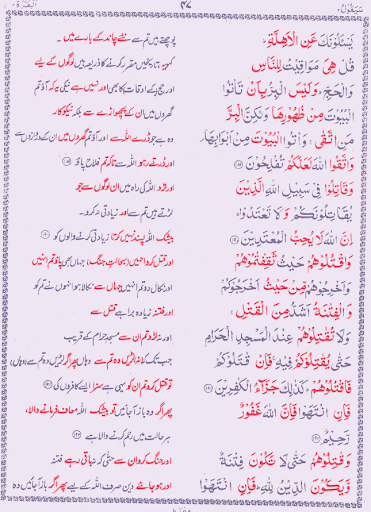 سَيَقُوۡلُ ٢
٤٧
الۡبَقَرَة ٢
يَسۡـَٔلُوۡنَكَ عَنِ الۡاَهِلَّةِ ؕ
قُلۡ هِىَ مَوَاقِيۡتُ لِلنَّاسِ
وَالۡحَجِّ ؕ وَلَيۡسَ الۡبِرُّ بِاَنۡ تَاۡتُوا
الۡبُيُوۡتَ مِنۡ ظُهُوۡرِهَا وَلٰكِنَّ الۡبِرَّ
مَنِ اتَّقٰى ۚ وَاۡتُوا الۡبُيُوۡتَ مِنۡ اَبۡوَابِهَا ۪
وَاتَّقُوا اللّٰهَ لَعَلَّكُمۡ تُفۡلِحُوۡنَ ﴿١٨٩﴾
وَقَاتِلُوۡا فِىۡ سَبِيۡلِ اللّٰهِ الَّذِيۡنَ
يُقَاتِلُوۡنَكُمۡ وَلَا تَعۡتَدُوۡا ؕ
اِنَّ اللّٰهَ لَا يُحِبُّ الۡمُعۡتَدِيۡنَ ﴿١٩٠﴾
وَاقۡتُلُوۡهُمۡ حَيۡثُ ثَقِفۡتُمُوۡهُمۡ
وَاَخۡرِجُوۡهُمۡ مِّنۡ حَيۡثُ اَخۡرَجُوۡكُمۡ
وَالۡفِتۡنَةُ اَشَدُّ مِنَ الۡقَتۡلِ ۚ
وَلَا تُقٰتِلُوۡهُمۡ عِنۡدَ الۡمَسۡجِدِ الۡحَرَامِ
حَتّٰى يُقٰتِلُوۡكُمۡ فِيۡهِ ۚ فَاِنۡ قٰتَلُوۡكُمۡ
فَاقۡتُلُوۡهُمۡ ؕ كَذٰلِكَ جَزَآءُ الۡكٰفِرِيۡنَ ﴿١٩١﴾
فَاِنِ انۡتَهَوۡا فَاِنَّ اللّٰهَ غَفُوۡرٌ
رَّحِيۡمٌ ﴿١٩٢﴾
وَقٰتِلُوۡهُمۡ حَتّٰى لَا تَكُوۡنَ فِتۡنَةٌ
وَّيَكُوۡنَ الدِّيۡنُ لِلّٰهِ ؕ فَاِنِ انۡتَهَوۡا
پوچھتے ہیں تم سے نئے چاند کے بارے میں ۔
کہہ یہ تاریخیں مقرر کرنے کا ذریعہ ہیں لوگوں کے لیے
اور حج کے اوقات کا بھی اور نہیں ہے نیکی یہ کہ آؤ تم
گھروں میں ان کے پچھواڑے سے بلکہ نیکوکار
وہ ہے جو ڈرے اللہ سے اور آؤ تم گھروں میں ان کے دروازوں سے
اور ڈرتے رہو اللہ سے تاکہ تم فلاح پاؤ
اور لڑو اللہ کی راہ میں ان لوگوں سے جو
لڑتے ہیں تم سے اور زیادتی نہ کرو۔
بیشک اللہ پسند نہیں کرتا زیادتی کرنے والوں کو
اور قتل کرو انہیں (بحالتِ جنگ) جہاں بھی پاؤ تم انہیں
اور نکال دو تم انہیں جہاں سے نکالا ہو انہوں نے تم کو
اور فتنہ زیادہ برا ہے قتل سے
اور نہ لڑو تم ان سے مسجدِ حرام کے قریب
جب تک کہ نہ لڑیں وہ تم سے وہاں پھر اگر لڑیں وہ تم سے (وہاں)
تو قتل کرو تم ان کو یہی ہے سزا ایسے کافروں کی
پھر اگر وہ باز آ جائیں تو بیشک اللہ معاف فرمانے والا،
ہر حالت میں رحم کرنے والا ہے
اور جنگ کرو ان سے حتٰی کہ نہ باقی رہے فتنہ
اور ہو جائے دین صرف اللہ کے لیے پھر اگر باز آ جائیں وہ